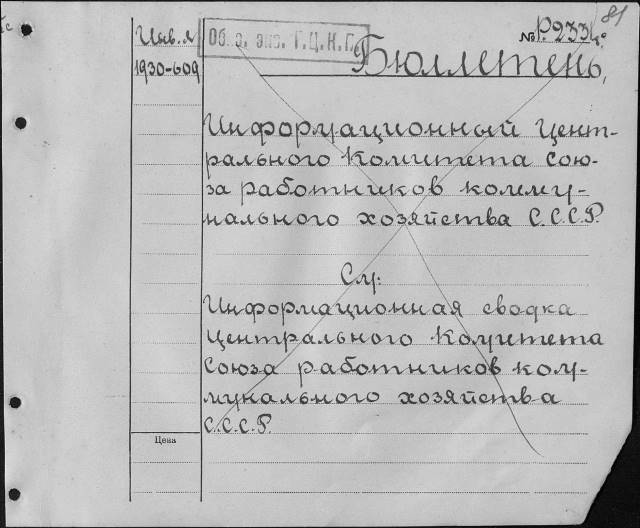 81
Инв. №
Об. э. экз. Г.Ц.К.П.
№Р.2334°
1930-609
Бюллетень,
Информационный Цент-
рального Комитета Сою-
за работников комму-
нального хозяйства С.С.С.Р.
См:
Информационная сводка
Центрального Комитета
Союза работников ком-
мунального хозяйства
С.С.С.Р.
Цена